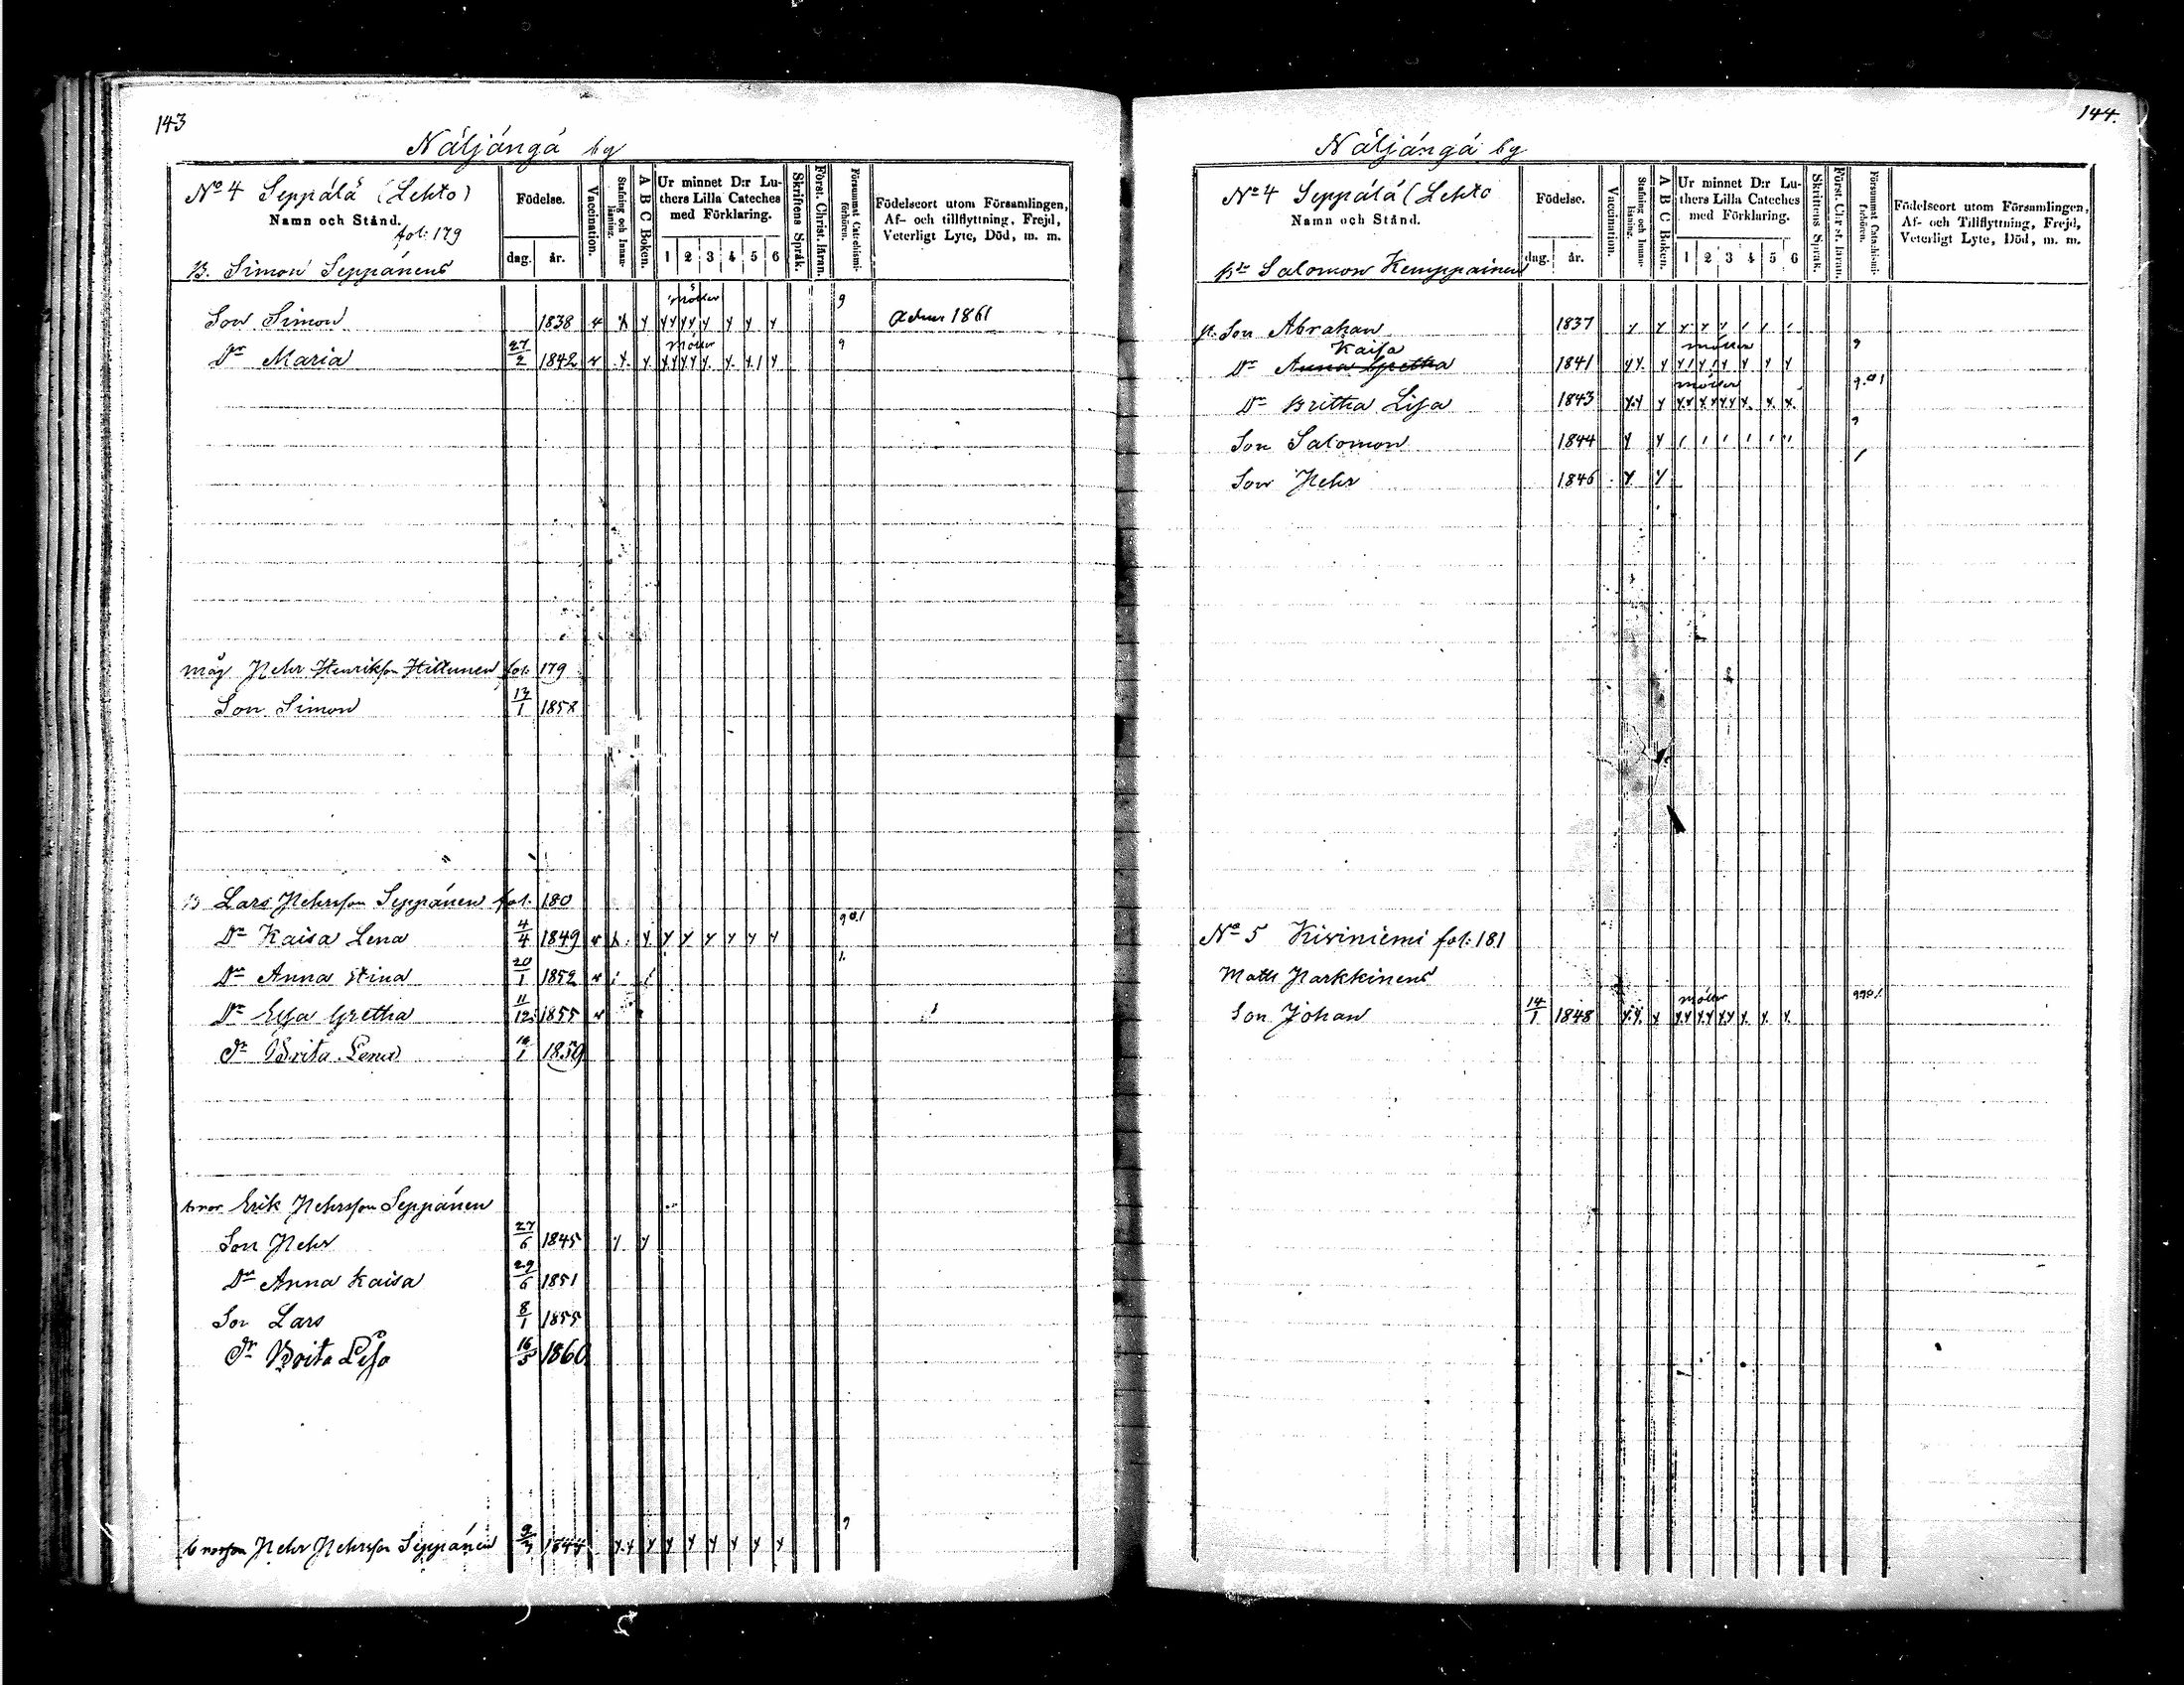 143
Näljängä by
No 4 Seppälä (Lehto)
Namn och Stånd.
fol: 179
B. Simon Seppänens
Födelse.
dag. år.
Vaccination.
Stafning och Innanläsning.
A B C Boken.
Ur minnet D:r Luthers Lilla Cateches med Förklaring.
1 2 3 4 5 6
Skriftens Språk.
Förståt. Christ. läran.
Försummat Catechismiförhören.
Födelseort utom Församlingen,
Af- och tillflyttning, Frejd,
Veterligt Lyte, Död, m. m.
Son Simon 1838 möter 9 Adm 1861
Dr Maria 27/2 1842 möter 9
måg Pehr Henriksson Hiltunen fol: 179
Son Simon 13/1 1858
B Lars Pehrsson Seppänen fol: 180
Dr Kaisa Lena 4/4 1849 901
Dr Anna Stina 20/1 1852 1.
Dr Elsa Gretha 11/12 1855
Dr Brita Lena 1859
bror Erik Pehrsson Seppänen
Son Pehr 27/6 1845
Dr Anna Kaisa 29/6 1851
Son Lars 8/1 1855
Dr Brita Lisa 16/5 1860
brorson Pehr Pehrsson Seppänen 1844 9
144.
Näljängä by
No 4 Seppälä (Lehto
Namn och Stånd.
Salomon Kemppainens
Födelse.
dag. år.
Vaccination.
Stafning och Innanläsning.
A B C Boken.
Ur minnet D:r Luthers Lilla Cateches med Förklaring.
1 2 3 4 5 6
Skriftens Språk.
Förståt. Christ. läran.
Försummat Catechismiförhören.
Födelseort utom Församlingen,
Af- och Tillflyttning, Frejd,
Veterligt Lyte, Död, m. m.
Son Abraham 1837
Kaisa
Dr Anna Gretha 1841 möter 9
Dr Britha Lisa 1843 möter 9.01
Son Salomon 1844 9
Son Pehr 1846 1
No 5 Kiviniemi fol: 181
Math Parkkinens
Son Johan 14/1 1848 möter 990/.